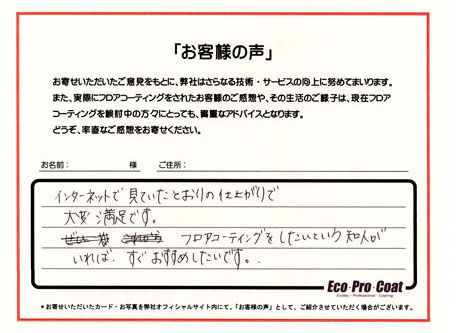 「お客様の声」
お寄せいただいたご意見をもとに、弊社はさらなる技術・サービスの向上に努めてまいります。
また、実際にフロアコーティングをされたお客様のご感想や、その生活のご様子は、現在フロア
コーティングを検討中の方々にとっても、貴重なアドバイスとなります。
どうぞ、率直なご感想をお寄せください。
お名前： 様 ご住所：
インターネットで見ていたとおりの仕上がりで
大変満足です。
フロアコーティングをしたいという知人が
いれば、すぐおすすめしたいです。
Eco・Pro・Coat
Ecoflex・Professional・Coating
＊お寄せいただいたカード・お写真を弊社オフィシャルサイト内にて、「お客様の声」として、ご紹介させていただく場合がございます。